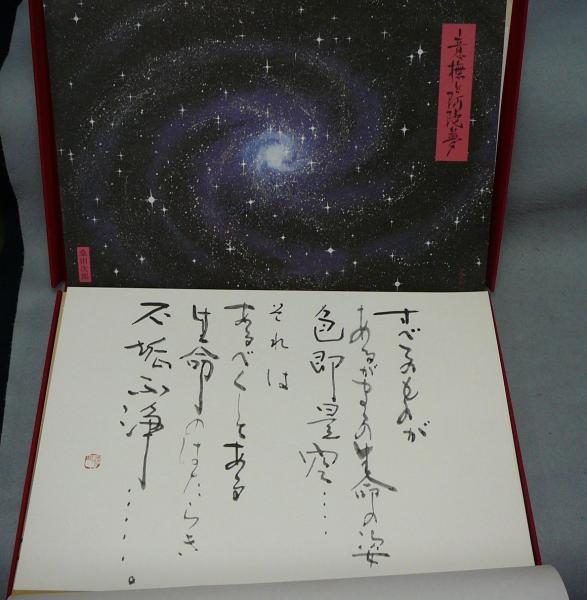 桑田次郎
すべてのものが
あるがままの生命の姿
色即是空・・・・
それは
あるべくしてある
生命のはたらき
不垢不浄・・・・・・。